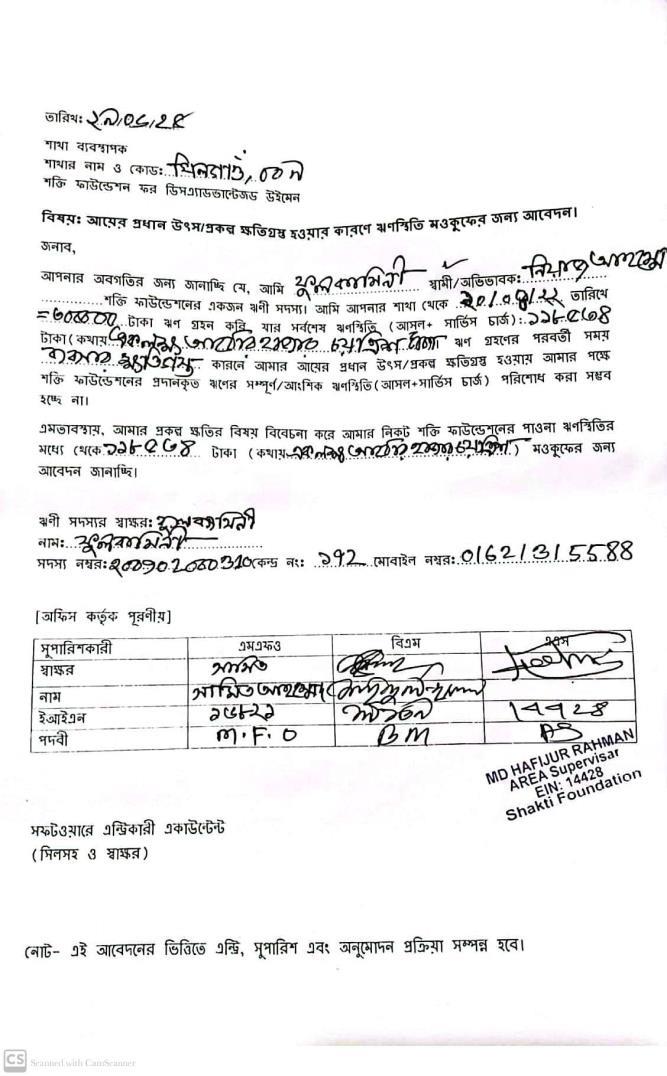 তারিখ: ২৯/০৬/২৫
শাখা ব্যবস্থাপক
শাখার নাম ও কোড:
শক্তি ফাউন্ডেশন ফর ডিসএ্যাডভান্টেজড উইমেন
বিষয়: আয়ের প্রধান উৎস/প্রকল্প ক্ষতিগ্রস্থ হওয়ার কারণে ঋণস্থিতি মওকুফের জন্য আবেদন।
জনাব,
আপনার অবগতির জন্য জানাচ্ছি যে, আমি ফুলকামিনী স্বামী/অভিভাবক:
শক্তি ফাউন্ডেশনের একজন ঋণী সদস্য। আমি আপনার শাখা থেকে তারিখে
টাকা ঋণ গ্রহন করি, যার সর্বশেষ ঋণস্থিতি (আসল+ সার্ভিস চার্জ): ১১৮৫৩৪
টাকা (কথায় ঋণ গ্রহণের পরবর্তী সময়
কারনে আমার আয়ের প্রধান উৎস/প্রকল্প ক্ষতিগ্রস্থ হওয়ায় আমার পক্ষে
শক্তি ফাউন্ডেশনের প্রদানকৃত ঋণের সম্পূর্ণ/আংশিক ঋণস্থিতি(আসল+সার্ভিস চার্জ) পরিশোধ করা সম্ভব
হচ্ছে না।
এমতাবস্থায়, আমার প্রকল্প ক্ষতির বিষয় বিবেচনা করে আমার নিকট শক্তি ফাউন্ডেশনের পাওনা ঋণস্থিতির
মধ্যে থেকে ১১৮৫৩৪ টাকা (কথায় ) মওকুফের জন্য
আবেদন জানাচ্ছি।
ঋণী সদস্যর স্বাক্ষর: ফুলকামিনী
নাম: ফুলকামিনী
সদস্য নম্বর: কেন্দ্র নং: ১৭২ মোবাইল নম্বর: 01621315588
[অফিস কর্তৃক পূরণীয়]
সুপারিশকারী এমএফও বিএম এএস
স্বাক্ষর সামিত
নাম সামিত আহম্মেদ
ইআইএন ১৬৮২১ 14428
পদবী M.F.O BM AS
MD HAFIJUR RAHMAN
AREA Supervisar
EIN: 14428
Shakti Foundation
সফটওয়ারে এন্ট্রিকারী একাউন্টেন্ট
(সিলসহ ও স্বাক্ষর)
নোট- এই আবেদনের ভিত্তিতে এন্ট্রি, সুপারিশ এবং অনুমোদন প্রক্রিয়া সম্পন্ন হবে।
CS Scanned with CamScanner